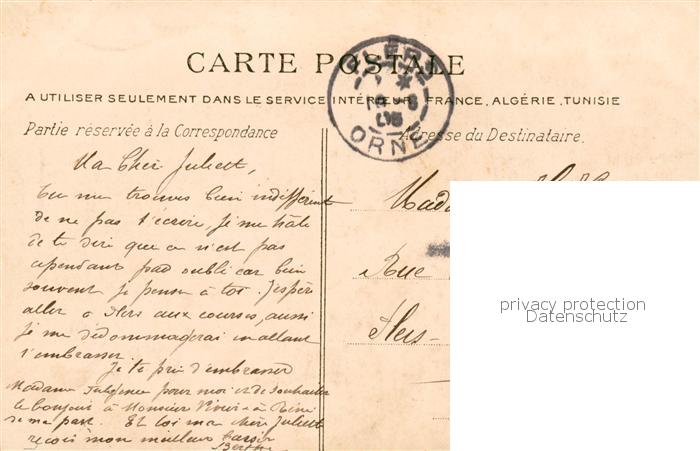 CARTE POSTALE
A UTILISER SEULEMENT DANS LE SERVICE INTÉRIEUR FRANCE, ALGÉRIE, TUNISIE
Partie réservée à la Correspondance
Adresse du Destinataire.
ORNE
Ma Cher Juliett,
tu me trouves bien indifférent
de ne pas t'écrire, je me hâte
de te dire que ce n'est pas
cependant pas oubli car bien
souvent je pense à toi. J'espère
aller à Flers aux courses, aussi
je me dédommagerai en allant
t'embrasser
Je te prie d'embrasser
Madame pour moi et de souhaiter
le bonjour à Monsieur à
de ma part. Et toi ma chère Juliett
reçois mon meilleur baiser
Berthe
Mada
Rue
Flers-
privacy protection
Datenschutz